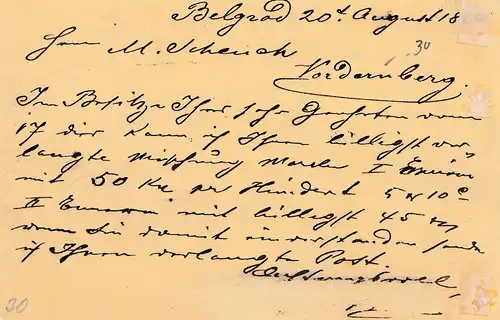 Belgrad 20t August 18
30
Herr M. Scheich
Vordernberg.
Im Besitze Ihres sehr Geehrten vom
17 dies kann ich Ihnen billigst ver
langte Mischung Marke I
mit 50 Kr per Hundert 5 10
II mit billigst 45
wenn Sie damit einverstanden sende
ich Ihnen verlangte Post.
Achtungsvoll,
30